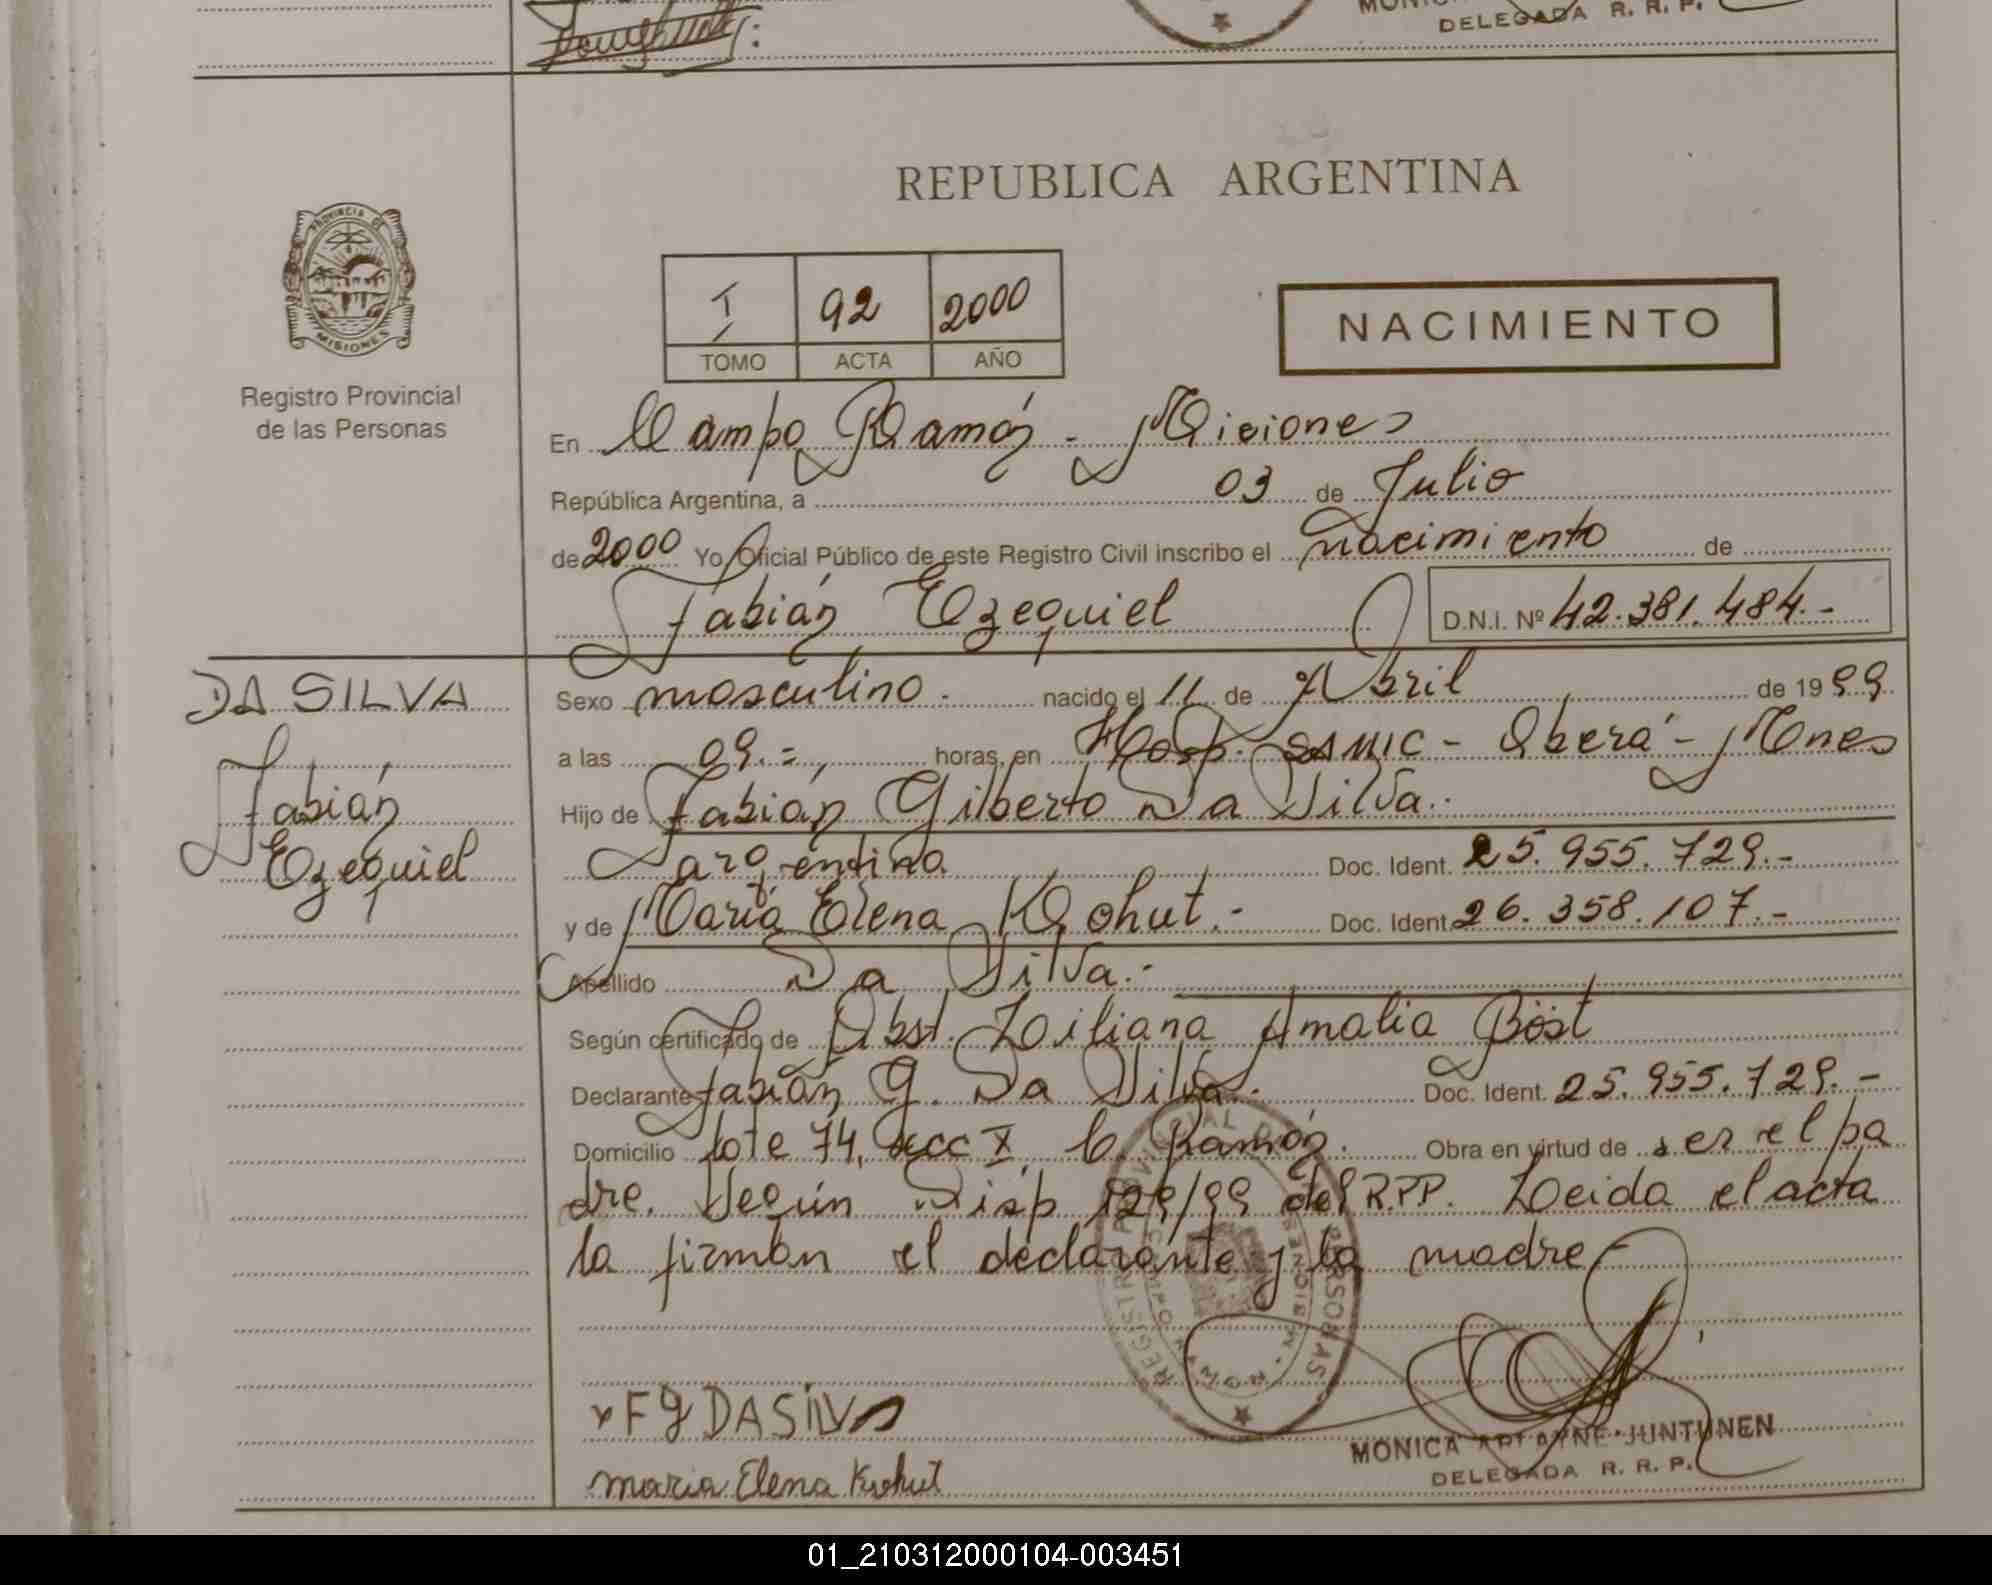 MONICA
DELEGADA R. R. P.
REPUBLICA ARGENTINA
PROVINCIA DE
MISIONES
Registro Provincial
de las Personas
I 92 2000
TOMO ACTA AÑO
NACIMIENTO
En Campo Ramón - Misiones
República Argentina, a 03 de Julio
de 2000 Yo Oficial Público de este Registro Civil inscribo el nacimiento de
Fabián Ezequiel D.N.I. Nº 42.381.484.-
DA SILVA
Fabián
Ezequiel
Sexo masculino. nacido el 11 de Abril de 1999
a las 09.=, horas, en Hosp. SAMIC - Oberá - Mnes
Hijo de Fabián Gilberto Da Silva.-
argentina Doc. Ident. 25.955.729.-
y de María Elena Kohut.- Doc. Ident. 26.358.107.-
Apellido Da Silva.-
Según certificado de Obst. Liliana Amalia Böst
Declarante Fabián G. Da Silva.- Doc. Ident. 25.955.729.-
Domicilio lote 74, secc X, C. Ramón. Obra en virtud de ser el pa
dre. Según Disp 129/99 del R.P.P. Leida el acta
la firman el declarante y la madre-
x FG DA SilVA
maria Elena Kohut
MONICA ARLAYNE JUNTUNEN
DELEGADA R. R. P.
01_210312000104-003451